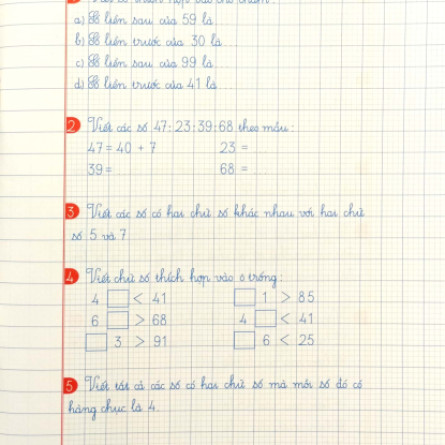 a) Số liền sau của 59 là
b) Số liền trước của 30 là
c) Số liền sau của 99 là
d) Số liền trước của 41 là
2 Viết các số 47; 23; 39; 68 theo mẫu:
47 = 40 + 7 23 =
39 = 68 =
3 Viết các số có hai chữ số khác nhau với hai chữ
số 5 và 7
4 Viết chữ số thích hợp vào ô trống:
4 □ < 41 □ 1 > 85
6 □ > 68 4 □ < 41
□ 3 > 91 □ 6 < 25
5 Viết tất cả các số có hai chữ số mà mỗi số đó có
hàng chục là 4.